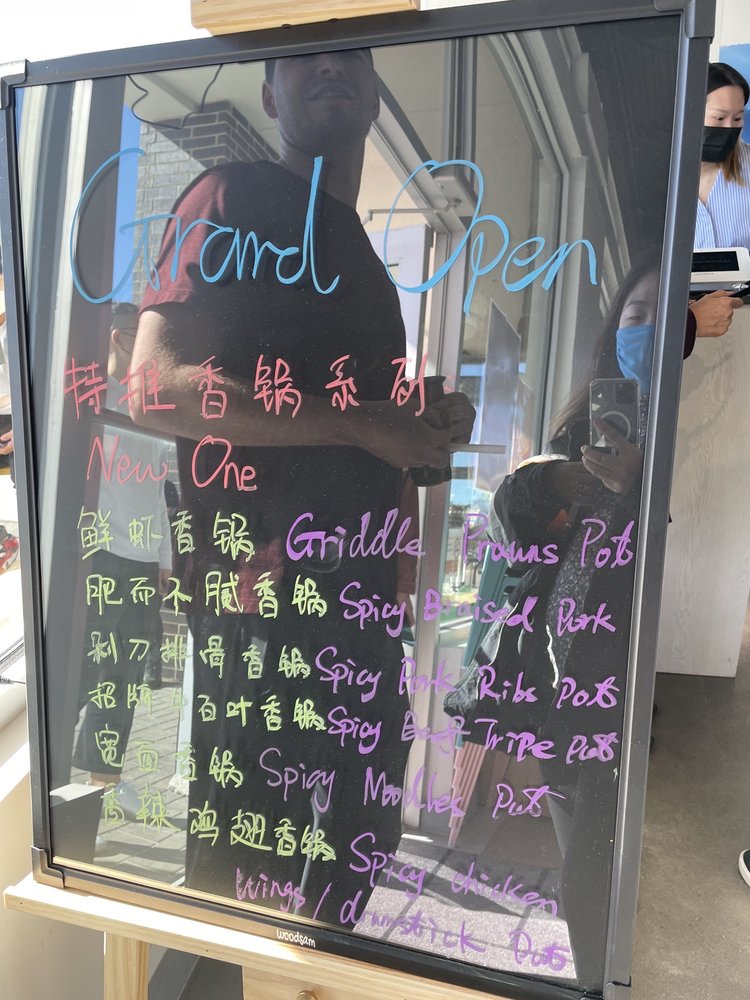 Grand Open
特推香锅系列
New One
鲜虾香锅 Griddle Prawns Pot
肥而不腻香锅 Spicy Braised Pork
剁刀排骨香锅 Spicy Pork Ribs Pot
招牌牛百叶香锅 Spicy Beef Tripe pot
宽面香锅 Spicy Noodles Pot
香辣鸡翅香锅 Spicy chicken
wings / drumstick Pot
woodsam